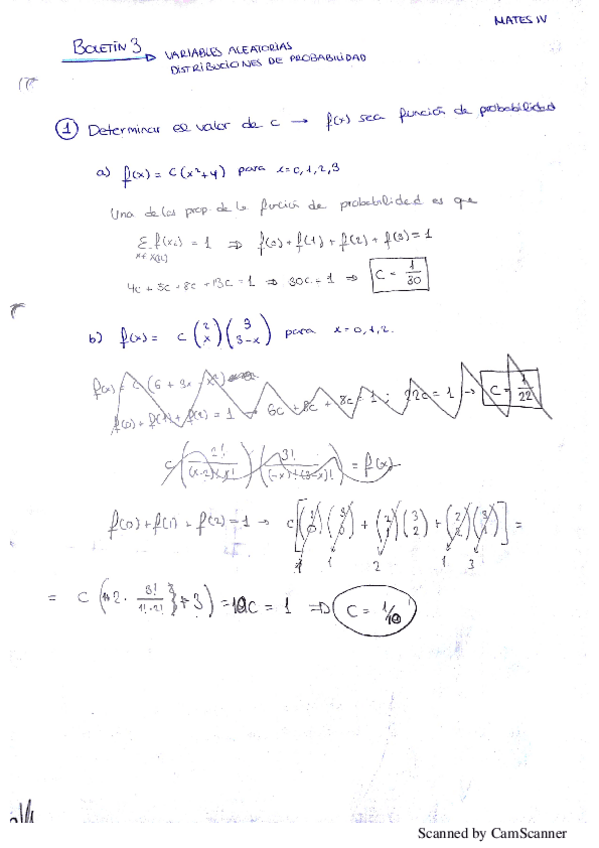 MATES IV
BOLETÍN 3
VARIABLES ALEATORIAS
DISTRIBUCIONES DE PROBABILIDAD
① Determinar el valor de c → f(x) sea función de probabilidad
a) f(x) = c(x²+4) para x=0,1,2,3
Una de las prop. de la función de probabilidad es que
Σ f(xᵢ) = 1 ⇒ f(0) + f(1) + f(2) + f(3) = 1
4c + 5c + 8c + 13c = 1 ⇒ 30c = 1 ⇒ c = 1/30
b) f(x) = c (2 x) (3 3-x) para x=0,1,2.
f(0) + f(1) + f(2) = 1 → 6c + 8c + 8c = 1 ; 22c = 1 → c = 1/22
= f(x)
f(0) + f(1) + f(2) = 1 → c[ + (3 2) + ] =
1 2 1 3
= c ( 2 · 3!/1!·2! + 3) = 10c = 1 ⇒ c = 1/10
Scanned by CamScanner